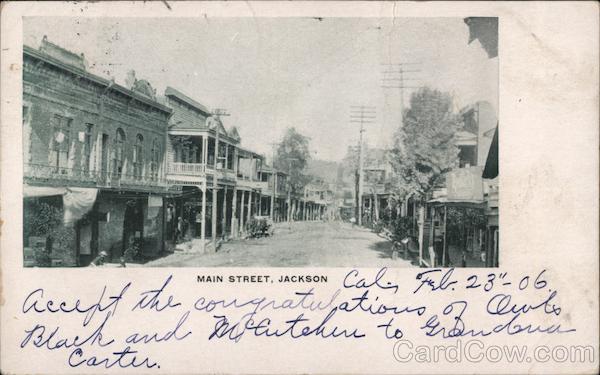 MAIN STREET, JACKSON Cal. Feb. 23"-06.
Accept the congratulations of
Black and McCutchen to Grandma
Carter.
CardCow.com